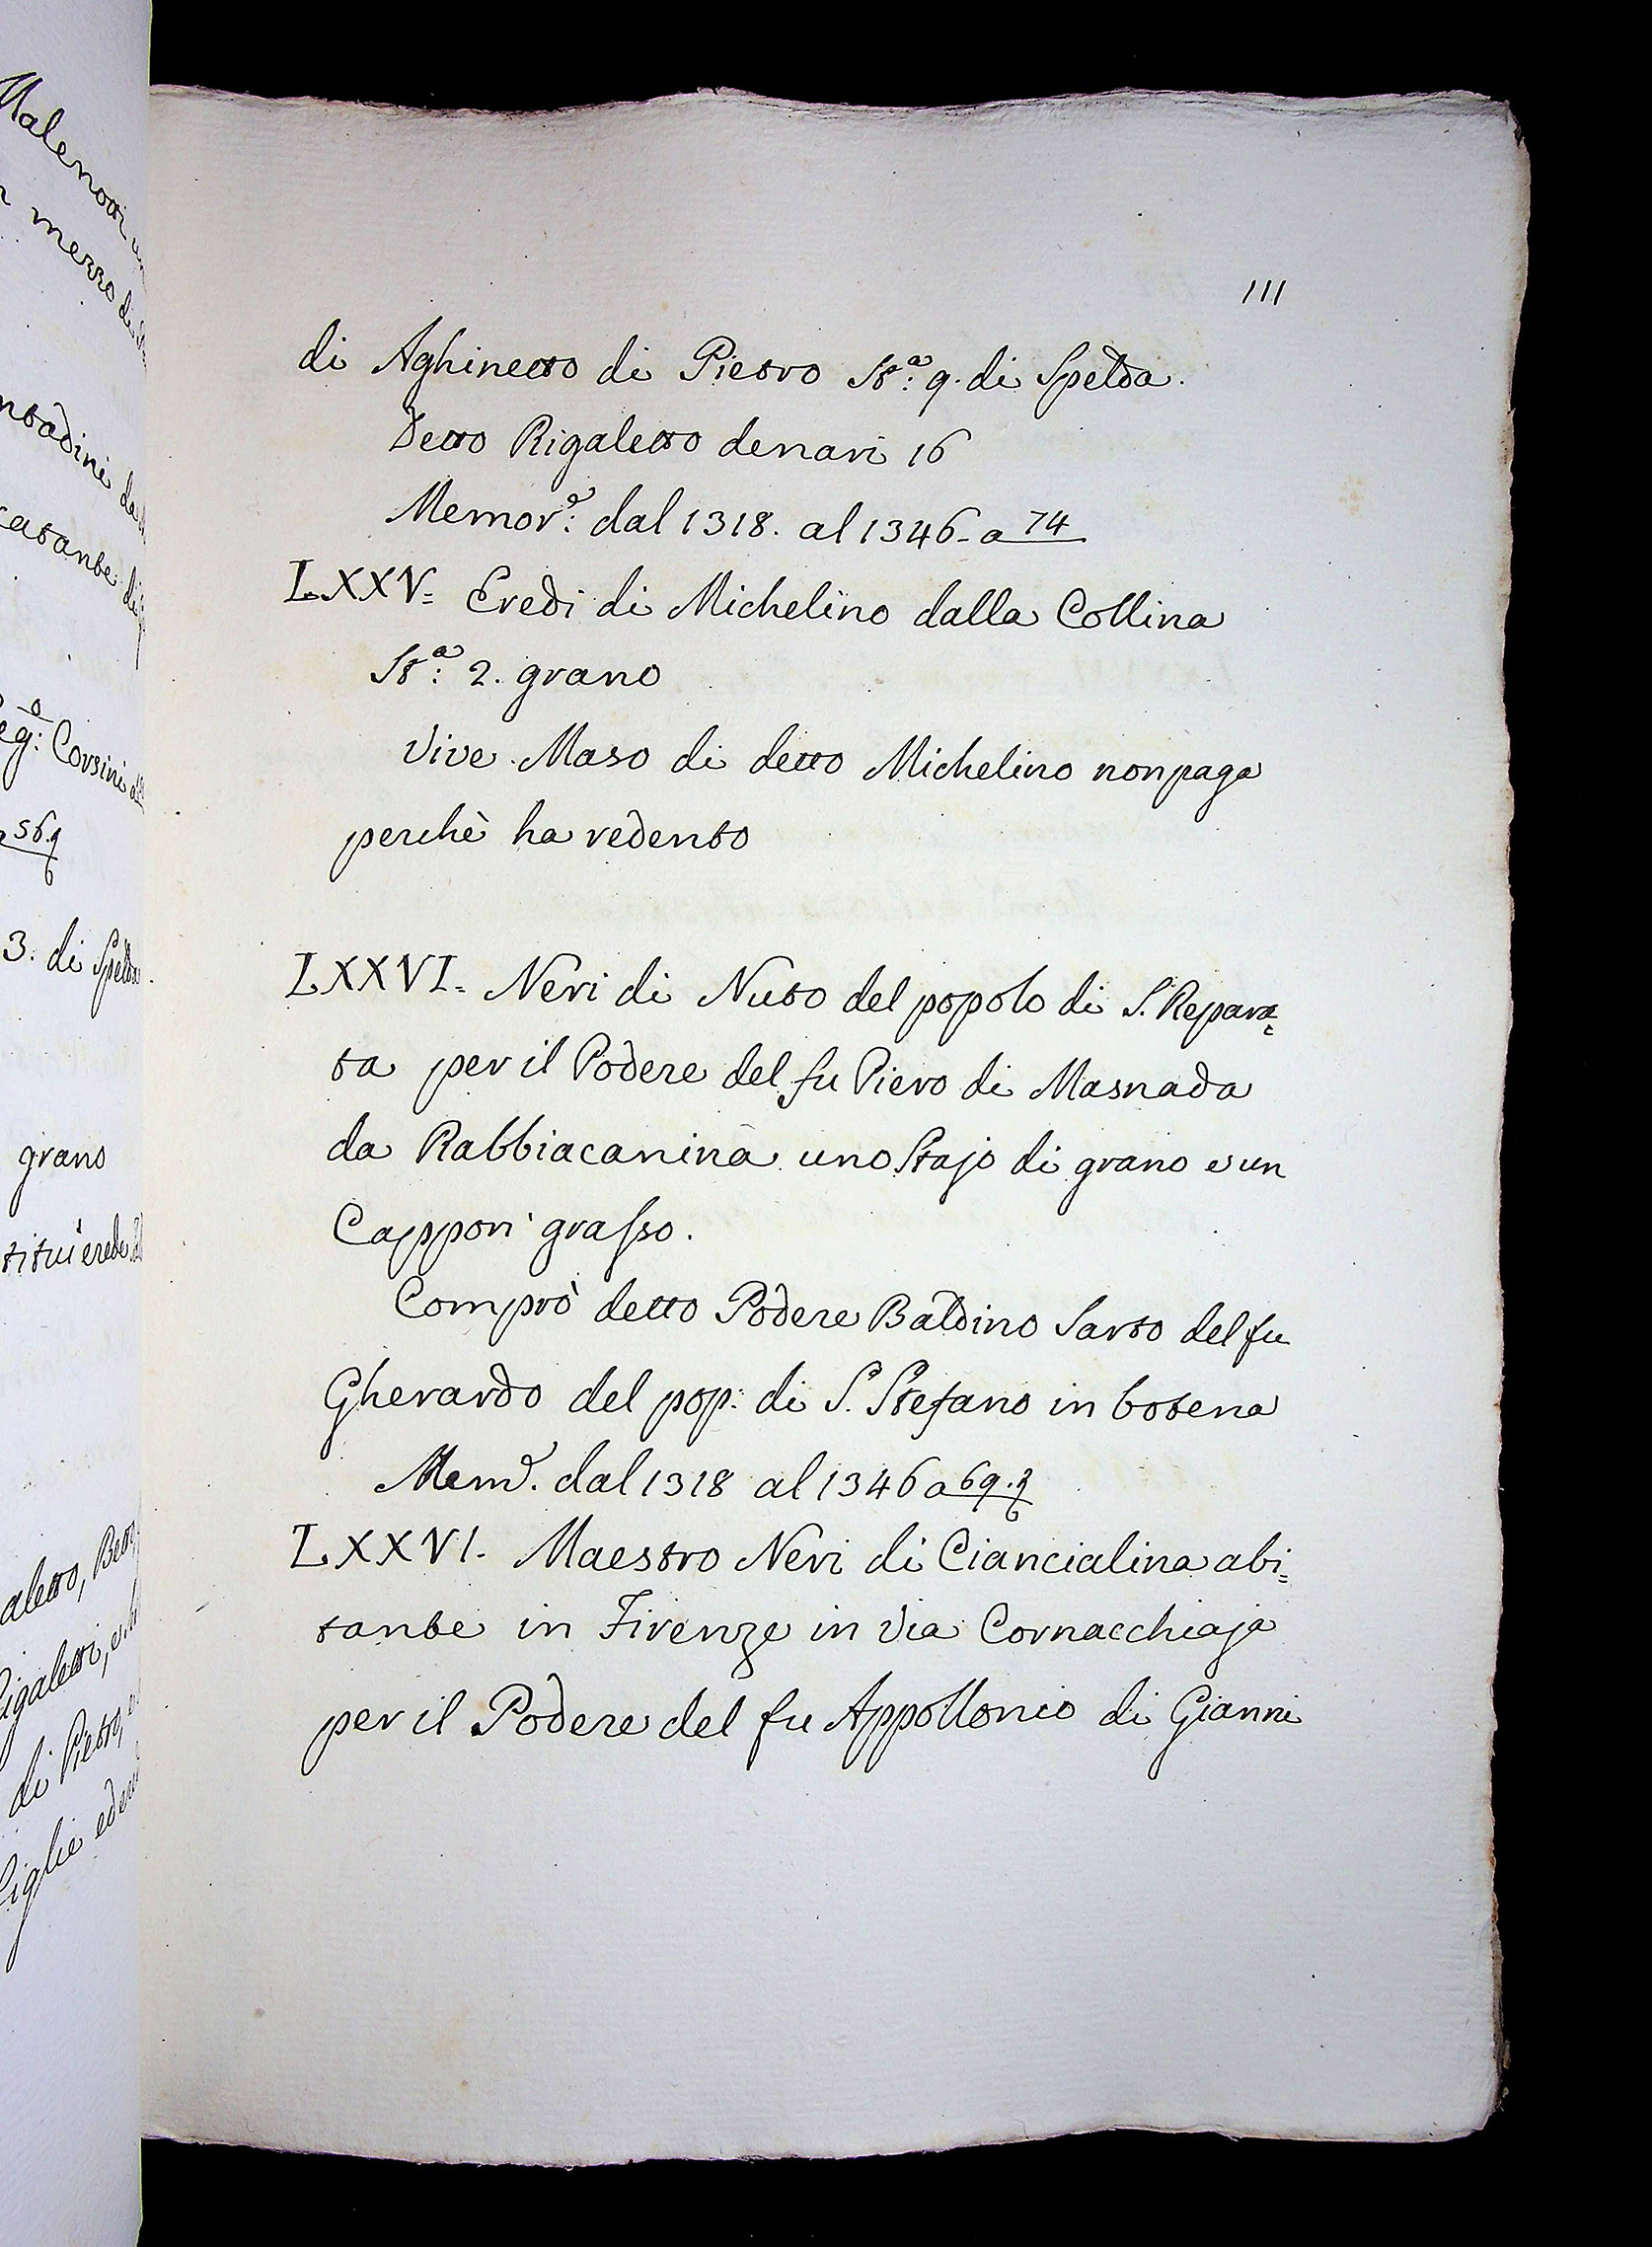 111
di Aghinetto di Pietro St.ª 9. di Spelda.
Detto Rigaletto denari 16
Memor.ᵉ: dal 1318. al 1346 - a 74
LXXV= Eredi di Michelino dalla Collina
St.ª: 2. grano
Vive Maso di detto Michelino non paga
perchè ha redento
LXXVI= Neri di Nuto del popolo di S. Repara=
ta per il Podere del fu Piero di Masnada
da Rabbiacanina uno Stajo di grano e un
Cappon grasso.
Comprò detto Podere Baldino Sarto del fu
Gherardo del pop: di S. Stefano in botena
Mem.ᵉ dal 1318 al 1346 a 69.
LXXVI- Maestro Neri di Ciancialina abi=
tante in Firenze in Via Cornacchiaja
per il Podere del fu Appollonio di Gianni
3. di Spelda.
grano